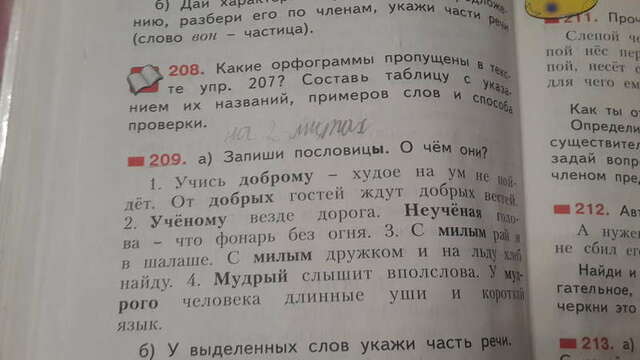 б) Дай
нию, разбери его по членам, укажи части речи
(слово вон – частица).
208. Какие орфограммы пропущены в текс-
те упр. 207? Составь таблицу с указа-
нием их названий, примеров слов и способа
проверки.
на 2 листах
209. а) Запиши пословицы. О чём они?
1. Учись доброму – худое на ум не пой-
дёт. От добрых гостей ждут добрых вестей.
2. Учёному везде дорога. Неучёная голо-
ва – что фонарь без огня. 3. С милым рай и
в шалаше. С милым дружком и на льду хлеб
найду. 4. Мудрый слышит вполслова. У муд-
рого человека длинные уши и короткий
язык.
б) У выделенных слов укажи часть речи.
211. Проч
Слепой
пой нёс
пой, несёт
для чего
Как ты
Определи
существител
задай вопр
членом пред
212.
А нужен
не сбил его
Найди и
гательное,
черкни это
213. а)